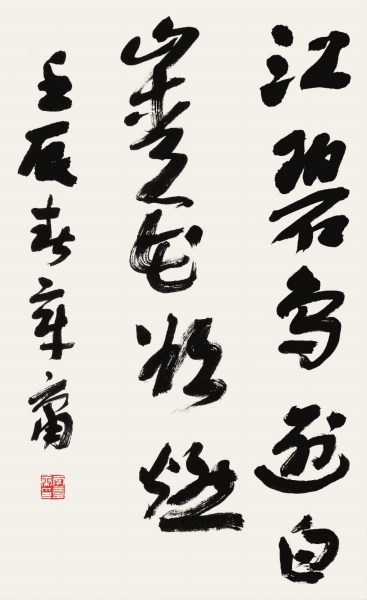 江碧鸟逾白
山青花欲燃
壬辰春